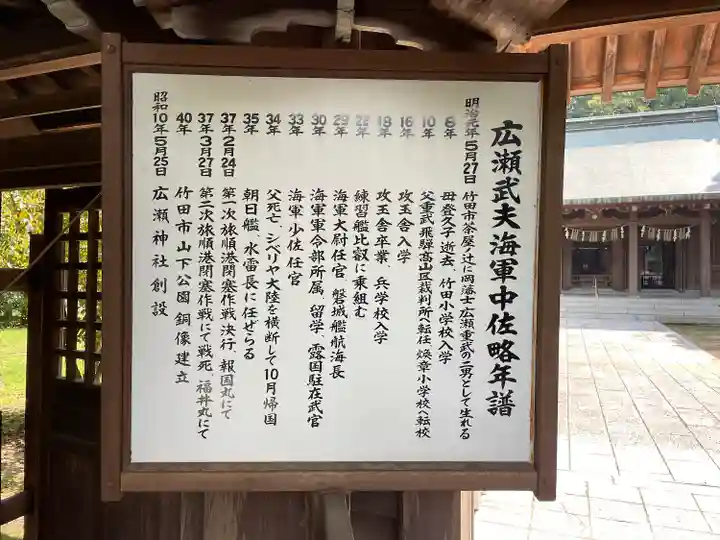 広瀬武夫海軍中佐略年譜
明治元年5月27日 竹田市茶屋ノ辻に岡藩士広瀬重武の二男として生れる
8年 母登久子逝去、竹田小学校入学
10年 父重武飛騨高山区裁判所へ転任 煥章小学校へ転校
16年 攻玉舎入学
18年 攻玉舎卒業、兵学校入学
22年 練習艦比叡に乗組む
29年 海軍大尉任官 磐城艦航海長
30年 海軍軍令部所属、留学、露国駐在武官
33年 海軍少佐任官
34年 父死亡、シベリヤ大陸を横断して10月帰国
35年 朝日艦、水雷長に任ぜらる
37年2月24日 第一次旅順港閉塞作戦決行、報国丸にて
37年3月27日 第二次旅順港閉塞作戦にて戦死、福井丸にて
40年 竹田市山下公園 銅像建立
昭和10年5月25日 広瀬神社創設